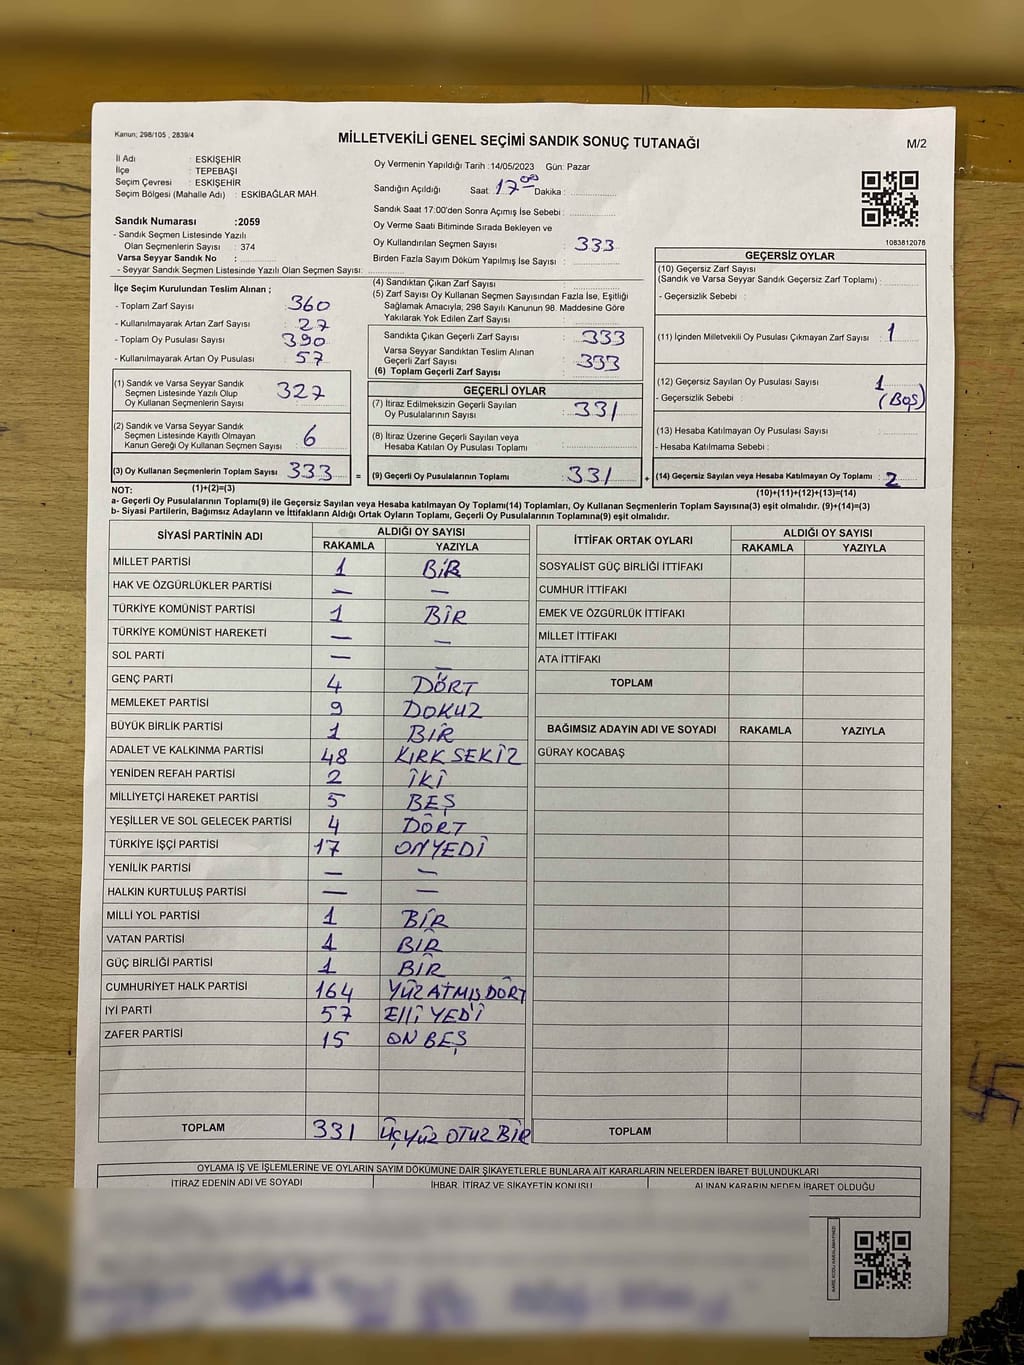 Kanun; 298/105 , 2839/4
MİLLETVEKİLİ GENEL SEÇİMİ SANDIK SONUÇ TUTANAĞI
M/2
İl Adı : ESKİŞEHİR
İlçe : TEPEBAŞI
Seçim Çevresi : ESKİŞEHİR
Seçim Bölgesi (Mahalle Adı) : ESKİBAĞLAR MAH.
Sandık Numarası :2059
- Sandık Seçmen Listesinde Yazılı
Olan Seçmenlerin Sayısı : 374
Varsa Seyyar Sandık No :
- Seyyar Sandık Seçmen Listesinde Yazılı Olan Seçmen Sayısı:
Oy Vermenin Yapıldığı Tarih :14/05/2023 Gün: Pazar
Sandığın Açıldığı Saat: 17 00 Dakika :
Sandık Saat 17:00'den Sonra Açımış İse Sebebi :
Oy Verme Saati Bitiminde Sırada Bekleyen ve
Oy Kullandırılan Seçmen Sayısı : 333
Birden Fazla Sayım Döküm Yapılmış İse Sayısı :
1083812076
İlçe Seçim Kurulundan Teslim Alınan ;
- Toplam Zarf Sayısı : 360
- Kullanılmayarak Artan Zarf Sayısı : 27
- Toplam Oy Pusulası Sayısı : 390
- Kullanılmayarak Artan Oy Pusulası : 57
(1) Sandık ve Varsa Seyyar Sandık
Seçmen Listesinde Yazılı Olup
Oy Kullanan Seçmenlerin Sayısı : 327
(2) Sandık ve Varsa Seyyar Sandık
Seçmen Listesinde Kayıtlı Olmayan
Kanun Gereği Oy Kullanan Seçmen Sayısı : 6
(3) Oy Kullanan Seçmenlerin Toplam Sayısı : 333
(1)+(2)=(3)
(4) Sandıktan Çıkan Zarf Sayısı :
(5) Zarf Sayısı Oy Kullanan Seçmen Sayısından Fazla İse, Eşitliği
Sağlamak Amacıyla, 298 Sayılı Kanunun 98. Maddesine Göre
Yakılarak Yok Edilen Zarf Sayısı :
Sandıkta Çıkan Geçerli Zarf Sayısı : 333
Varsa Seyyar Sandıktan Teslim Alınan
Geçerli Zarf Sayısı : 333
(6) Toplam Geçerli Zarf Sayısı :
GEÇERLİ OYLAR
(7) İtiraz Edilmeksizin Geçerli Sayılan
Oy Pusulalarının Sayısı : 331
(8) İtiraz Üzerine Geçerli Sayılan veya
Hesaba Katılan Oy Pusulaları Toplamı :
= (9) Geçerli Oy Pusulalarının Toplamı : 331 +
GEÇERSİZ OYLAR
(10) Geçersiz Zarf Sayısı
(Sandık ve Varsa Seyyar Sandık Geçersiz Zarf Toplamı) :
- Geçersizlik Sebebi :
(11) İçinden Milletvekili Oy Pusulası Çıkmayan Zarf Sayısı : 1
(12) Geçersiz Sayılan Oy Pusulası Sayısı : 1
- Geçersizlik Sebebi : (Boş)
(13) Hesaba Katılmayan Oy Pusulası Sayısı :
- Hesaba Katılmama Sebebi :
(14) Geçersiz Sayılan veya Hesaba Katılmayan Oy Toplamı : 2
(10)+(11)+(12)+(13)=(14)
NOT:
a- Geçerli Oy Pusulalarının Toplamı(9) ile Geçersiz Sayılan veya Hesaba katılmayan Oy Toplamı(14) Toplamları, Oy Kullanan Seçmenlerin Toplam Sayısına(3) eşit olmalıdır. (9)+(14)=(3)
b- Siyasi Partilerin, Bağımsız Adayların ve İttifakların Aldığı Ortak Oyların Toplamı, Geçerli Oy Pusulalarının Toplamına(9) eşit olmalıdır.
SİYASİ PARTİNİN ADI ALDIĞI OY SAYISI
RAKAMLA YAZIYLA
MİLLET PARTİSİ 1 BİR
HAK VE ÖZGÜRLÜKLER PARTİSİ — —
TÜRKİYE KOMÜNİST PARTİSİ 1 BİR
TÜRKİYE KOMÜNİST HAREKETİ — —
SOL PARTİ — —
GENÇ PARTİ 4 DÖRT
MEMLEKET PARTİSİ 9 DOKUZ
BÜYÜK BİRLİK PARTİSİ 1 BİR
ADALET VE KALKINMA PARTİSİ 48 KIRK SEKİZ
YENİDEN REFAH PARTİSİ 2 İKİ
MİLLİYETÇİ HAREKET PARTİSİ 5 BEŞ
YEŞİLLER VE SOL GELECEK PARTİSİ 4 DÖRT
TÜRKİYE İŞÇİ PARTİSİ 17 ONYEDİ
YENİLİK PARTİSİ — —
HALKIN KURTULUŞ PARTİSİ — —
MİLLİ YOL PARTİSİ 1 BİR
VATAN PARTİSİ 1 BİR
GÜÇ BİRLİĞİ PARTİSİ 1 BİR
CUMHURİYET HALK PARTİSİ 164 YÜZ ATMIŞ DÖRT
İYİ PARTİ 57 Elli YEDİ
ZAFER PARTİSİ 15 ON BEŞ
TOPLAM 331 ÜÇYÜZ OTUZ BİR
İTTİFAK ORTAK OYLARI ALDIĞI OY SAYISI
RAKAMLA YAZIYLA
SOSYALİST GÜÇ BİRLİĞİ İTTİFAKI
CUMHUR İTTİFAKI
EMEK VE ÖZGÜRLÜK İTTİFAKI
MİLLET İTTİFAKI
ATA İTTİFAKI
TOPLAM
BAĞIMSIZ ADAYIN ADI VE SOYADI RAKAMLA YAZIYLA
GÜRAY KOCABAŞ
TOPLAM
OYLAMA İŞ VE İŞLEMLERİNE VE OYLARIN SAYIM DÖKÜMÜNE DAİR ŞİKAYETLERLE BUNLARA AİT KARARLARIN NELERDEN İBARET BULUNDUKLARI
İTİRAZ EDENİN ADI VE SOYADI İHBAR, İTİRAZ VE ŞİKAYETİN KONUSU ALINAN KARARIN NEDEN İBARET OLDUĞU